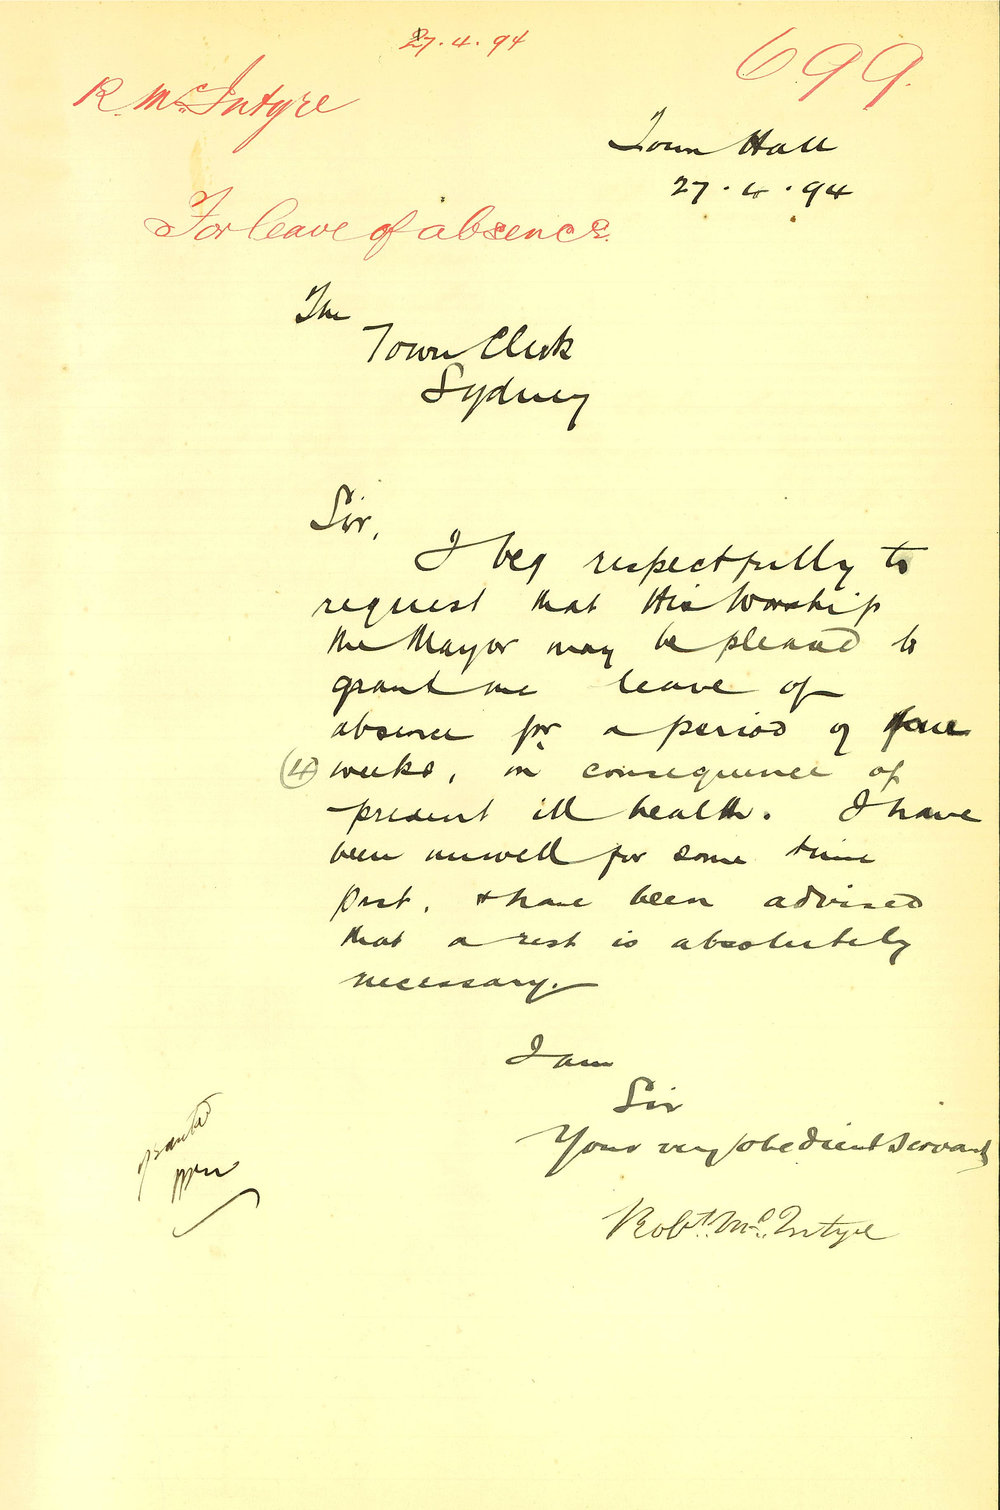 27.4.94
699.
R. McIntyre
Town Hall
27.4.94
For leave of absence.
The
Town Clerk
Sydney
Sir,
I beg respectfully to
request that His Worship
the Mayor may be pleased to
grant me leave of
absence for a period of four
(4) weeks, in consequence of
present ill health. I have
been unwell for some time
past, & have been advised
that a rest is absolutely
necessary.
I am
Sir
Your very obedient servant
Robt. McIntyre
Granted